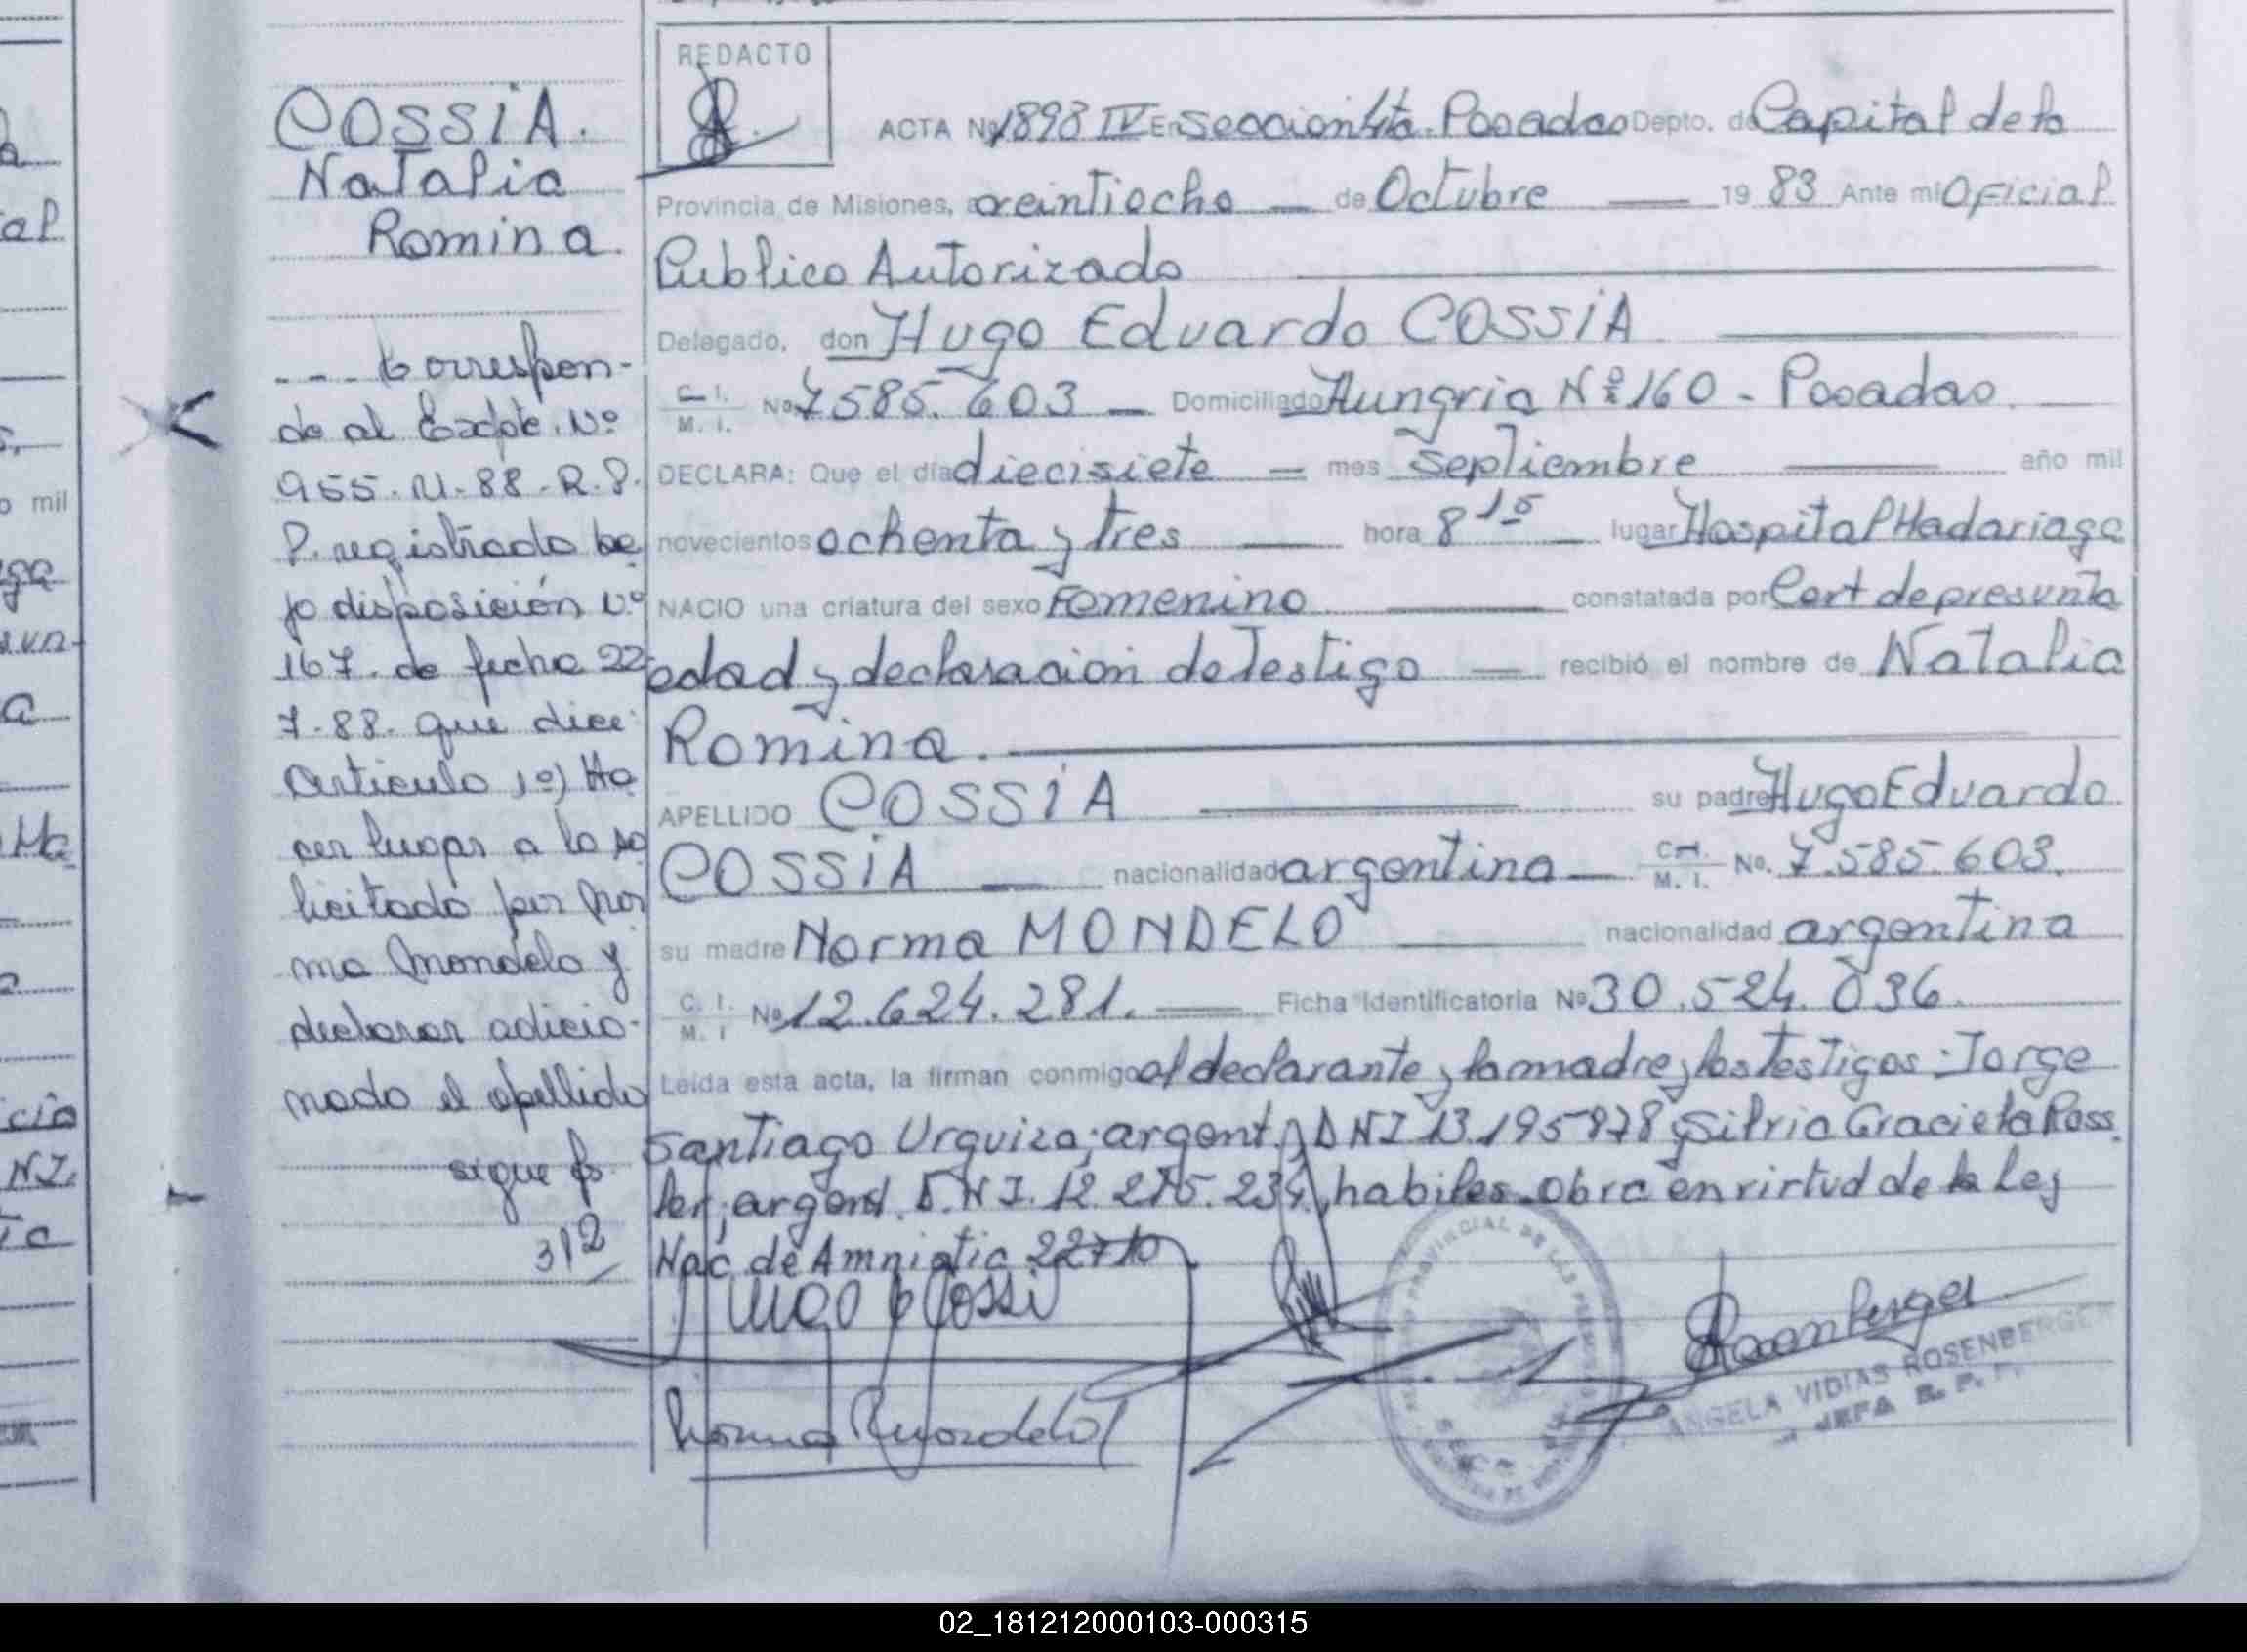 COSSIA.
Natalia
Romina
--- Correspon-
de al Expte. Nº
955-N-88-R.P.
P. registrado ba
jo disposición Nº
167. de fecha 22-
7-88. que dice:
Articulo 1º) Ha
cer lugar a lo so
licitado por Nor
ma Mondelo y
declarar adicio-
nado el apellido
sigue fo
312
REDACTO
ACTA Nº 1893 IV En Seccion 4ta. Posadas Depto. de Capital de la
Provincia de Misiones, a veintiocho de Octubre 19 83 Ante mi Oficial
Publico Autorizado
Delegado, don Hugo Eduardo COSSIA
C. I. M. I. Nº 7.585.603 Domiciliado Hungria Nº 160 - Posadas.
DECLARA: Que el día diecisiete mes septiembre año mil
novecientos ochenta y tres hora 8 15 lugar Hospital Madariaga
NACIO una criatura del sexo Femenino constatada por Cert de presunta
edad y declaracion de Testigo recibió el nombre de Natalia
Romina.
APELLIDO COSSIA su padre Hugo Eduardo
COSSIA nacionalidad argentina C. I. M. I. No. 7.585.603.
su madre Norma MONDELO nacionalidad argentina
C. I. M. I Nº 12.624.281. Ficha Identificatoria Nº 30.524.036.
Leída esta acta, la firman conmigo el declarante y la madre y los Testigos: Jorge
Santiago Urquiza; argent. DNI 13.195878 y Silvia Graciela Ross
ler; argent. D.N.I. 12.275.234, habiles. Obra en virtud de la Ley
Nac. de Amnistia 22710
Hugo E Cossi
Norma Mondelo
Rosenberger
ANGELA VIDIAS ROSENBERGER
JEFA R. P. P.
mil
02_181212000103-000315